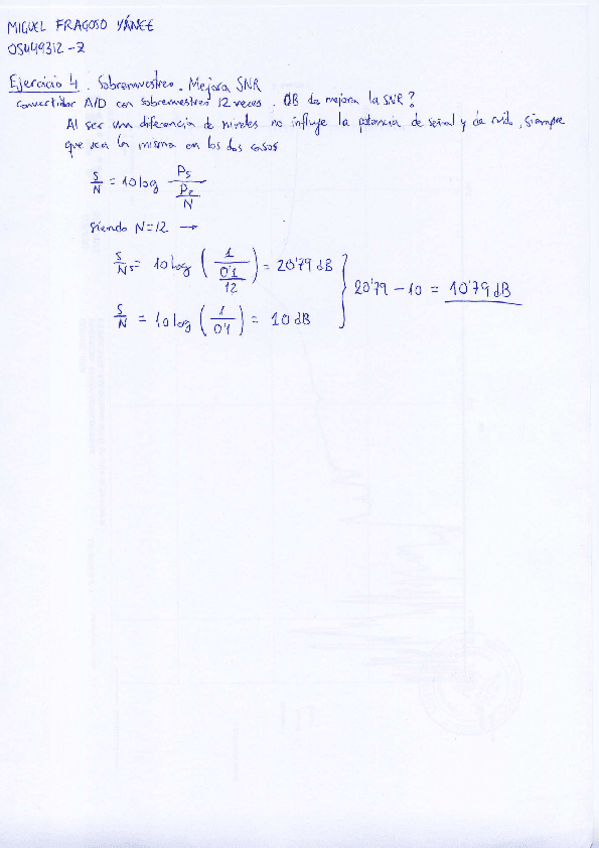 MIGUEL FRAGOSO YÁNEZ
05449312-Z
Ejercicio 4. Sobremuestreo. Mejora SNR
convertidor A/D con sobremuestreo 12 veces. dB de mejora la SNR?
Al ser una diferencia de niveles no influye la potencia de señal y de ruido, siempre
que sea la misma en los dos casos
S/N = 10 log Ps/(Pe/N)
Siendo N=12 →
S/Ns = 10 log (1/(0'1/12)) = 20'79 dB
S/N = 10 log (1/0'1) = 10 dB
20'79 - 10 = 10'79 dB